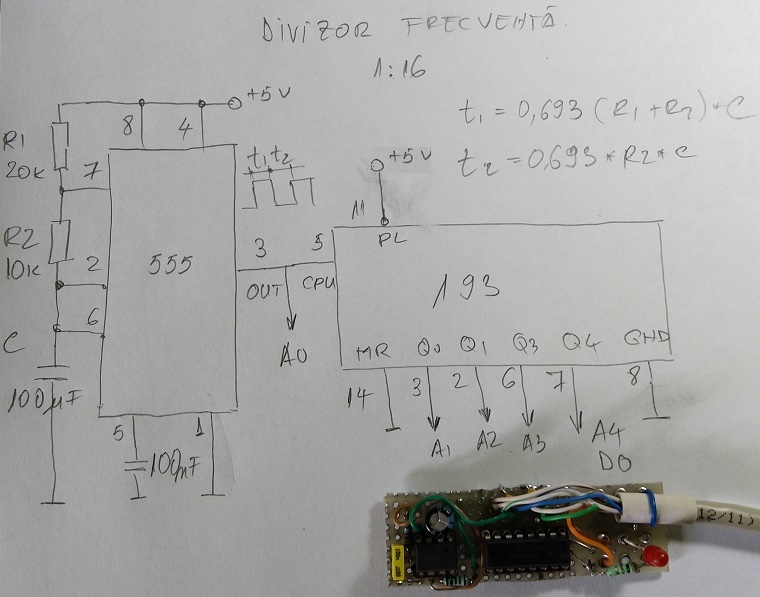 DIVIZOR FRECVENTĂ
1:16
t1 = 0,693 (R1+R2)*C
t2 = 0,693 * R2 * C
+5V
8
4
R1
20K
7
t1 t2
+5V
11
PL
R2
10K
2
555
3
5
OUT
CPU
193
6
C
A0
MR
Q0
Q1
Q3
Q4
GND
100µF
14
3
2
6
7
8
5
1
100nF
A1
A2
A3
A4
D0
12/11)